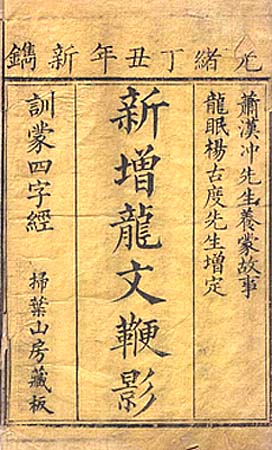 光緒丁丑年新鐫
蕭漢冲先生養蒙故事
龍眠楊古度先生增定
新增龍文鞭影
訓蒙四字經
掃葉山房藏板